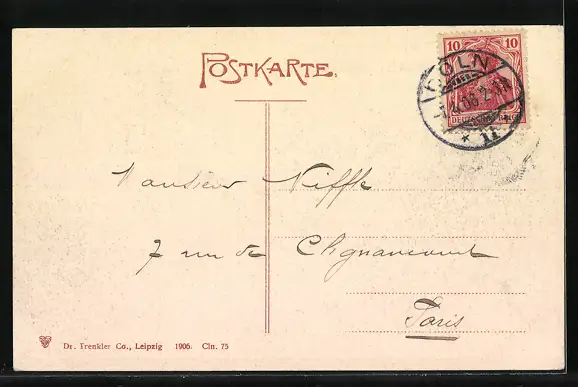 POSTKARTE.
10 10
CÖLN
06. 2-3N
* 11 *
DEUTSCHES REICH
Monsieur Niffle
7 rue de Clignancourt
Paris
Dr. Trenkler Co., Leipzig 1906. Cln. 75